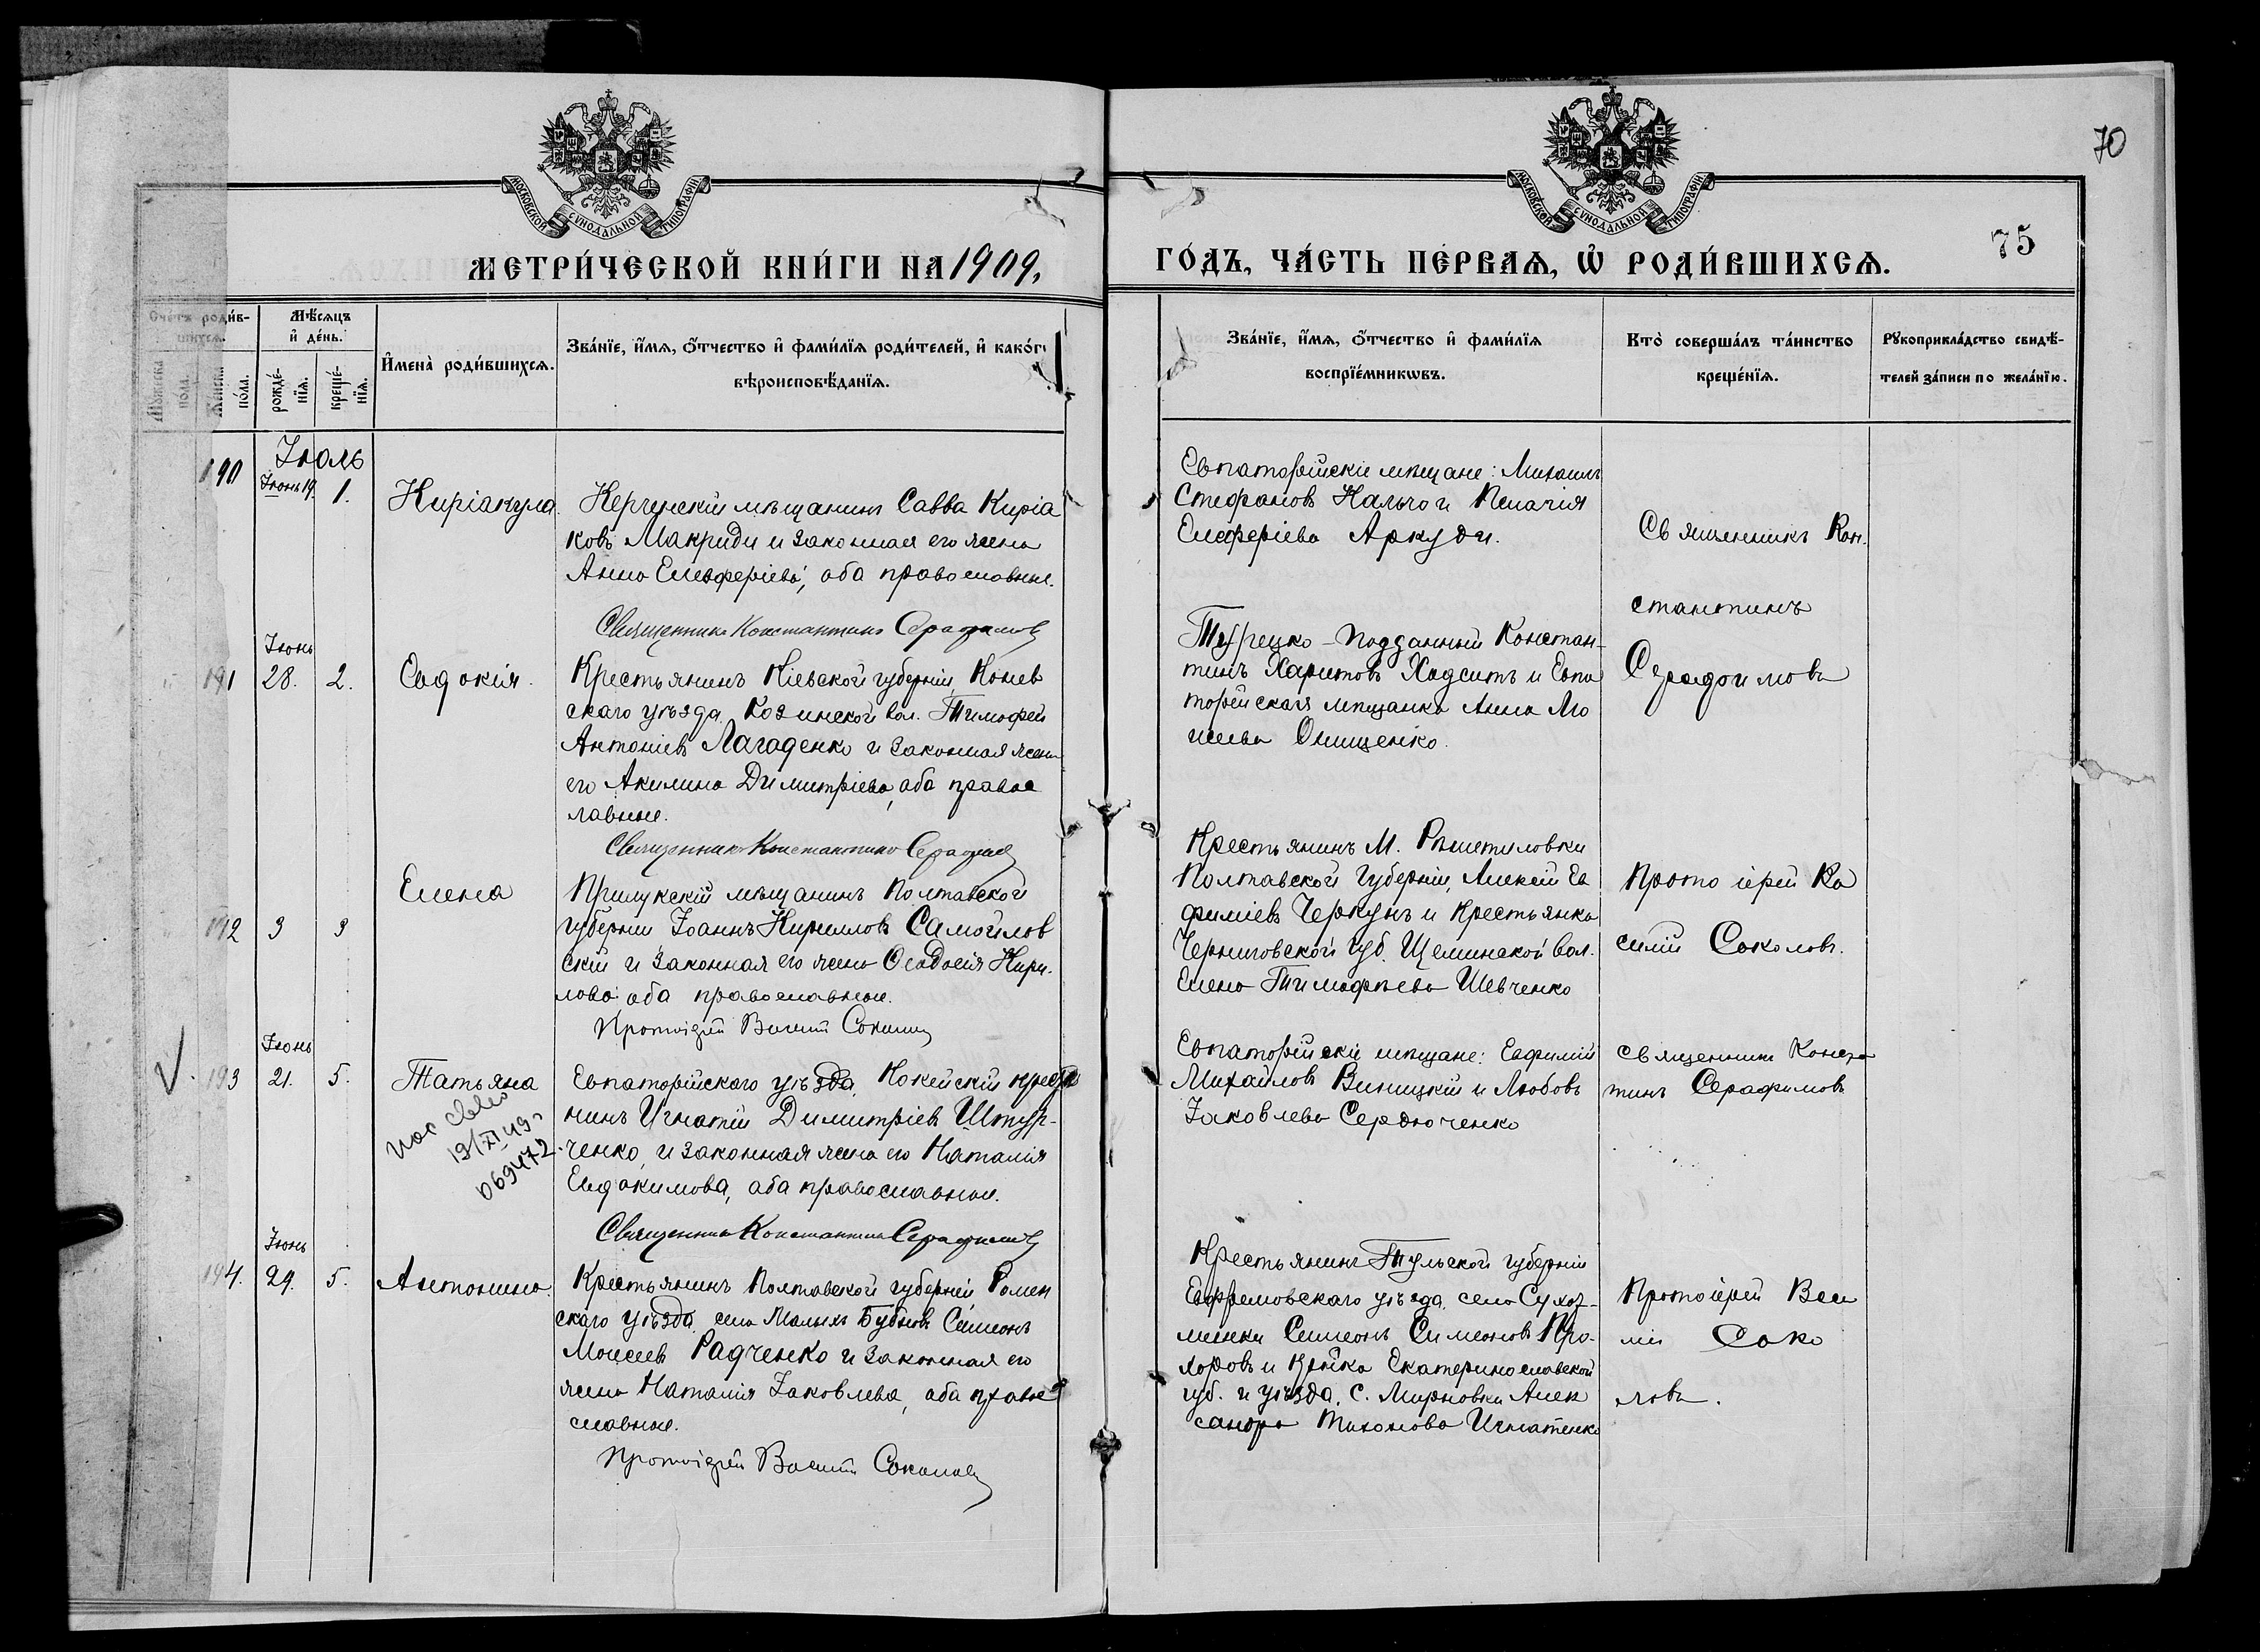 70
75
МОСКОВСКОЙ СѴНОДАЛЬНОЙ ТИПОГРАФІИ
МОСКОВСКОЙ СѴНОДАЛЬНОЙ ТИПОГРАФІИ
МЕТРИ́ЧЕСКОЙ КНИ́ГИ НА 1909.
ГО́ДЪ, ЧА́СТЬ ПЕ́РВАѦ, Ѡ҆ РОДИ́ВШИХСѦ.
Сче́тъ роди́в-
шихсѧ.
Мꙋжеска по́ла.
Же́нска по́ла.
Мѣ́сѧцъ
и҆ де́нь.
рожде́-
нїѧ.
креще́-
нїѧ.
И҆мена̀ роди́вшихсѧ.
Зва́нїе, и҆́мѧ, ѻ҆́тчество и҆ фами́лїѧ роди́телей, и҆ како́г
вѣроисповѣ́данїѧ.
Зва́нїе, и҆́мѧ, ѻ҆́тчество и҆ фами́лїѧ
воспрїе́мникѡвъ.
Кто̀ соверша́лъ та́инство
креще́нїѧ.
Рꙋкоприкла́дство свидѣ́-
телей за́писи по жела́нїю.
Іюль
190
Іюнь 19.
1.
Киріакула
Керченскій мѣщанинъ Савва Киріа
ковъ Макриди и законная его жена
Анна Елевферіева, оба православные.
Священникъ Константинъ Серафимовъ
Евпаторійскіе мѣщане: Михаилъ
Стефановъ Кальчо и Пелагія
Елеферіева Аркуди.
Священникъ Кон.
стантинъ
Серафимовъ
191
Іюнь
28.
2.
Евдокія.
Крестьянинъ Кіевской губерніи, Конев
скаго уѣзда, Козинской вол. Тимофей
Антоніевъ Лагаденко и законная жена
его Акилина Димитріева, оба правос
лавные.
Священникъ Константинъ Серафимовъ
Турецко-подданный Констан-
тинъ Харитовъ Хадситъ и Евпа
торійская мѣщанка Анна Мо
исеева Онищенко.
192
3
3
Елена
Прилукскій мѣщанинъ Полтавской
губерніи Іоаннъ Кирилловъ Самойлов
скій и законная его жена Ѳеодосія Кири-
лова, оба православные.
Протоіерей Василій Соколовъ
Крестьянинъ М. Рѣшетиловки
Полтавской губерніи, Алексій Ев
фиміевъ Черкунъ и крестьянка
Черниговской губ. Щеминской вол.
Елена Тимофѣева Шевченко
Протоіерей Ва
силій Соколовъ.
193
Іюнь
21.
5.
Татьяна
19/XI 49
069472.
Евпаторійскаго уѣзда,
нинъ Игнатій Димитріевъ Штур-
ченко, и законная жена его Наталія
Евдокимова, оба православные.
Священникъ Константинъ Серафимовъ
Евпаторійскіе мѣщане: Евфимій
Михайловъ Виницкій и Любовь
Іаковлева Сердюченко
Священникъ Конста
тинъ Серафимовъ
194.
Іюнь
29.
5.
Антонина.
Крестьянинъ Полтавской губерніи Ромен
скаго уѣзда, села Малыхъ Бубновъ Симеонъ
Моисеевъ Радченко и законная его
жена Наталія Іаковлева, оба право
славные.
Протоіерей Василій Соколовъ
Крестьянинъ Тульской губерніи
Ефремовскаго уѣзда, села Сухот-
минки Симеонъ Симеоновъ Про-
хоровъ и Екатеринославской
губ. и уѣзда, с. Мирновки Алек
сандра Тихонова Игнатенко
Протоіерей Васи
лій Соко
ловъ.